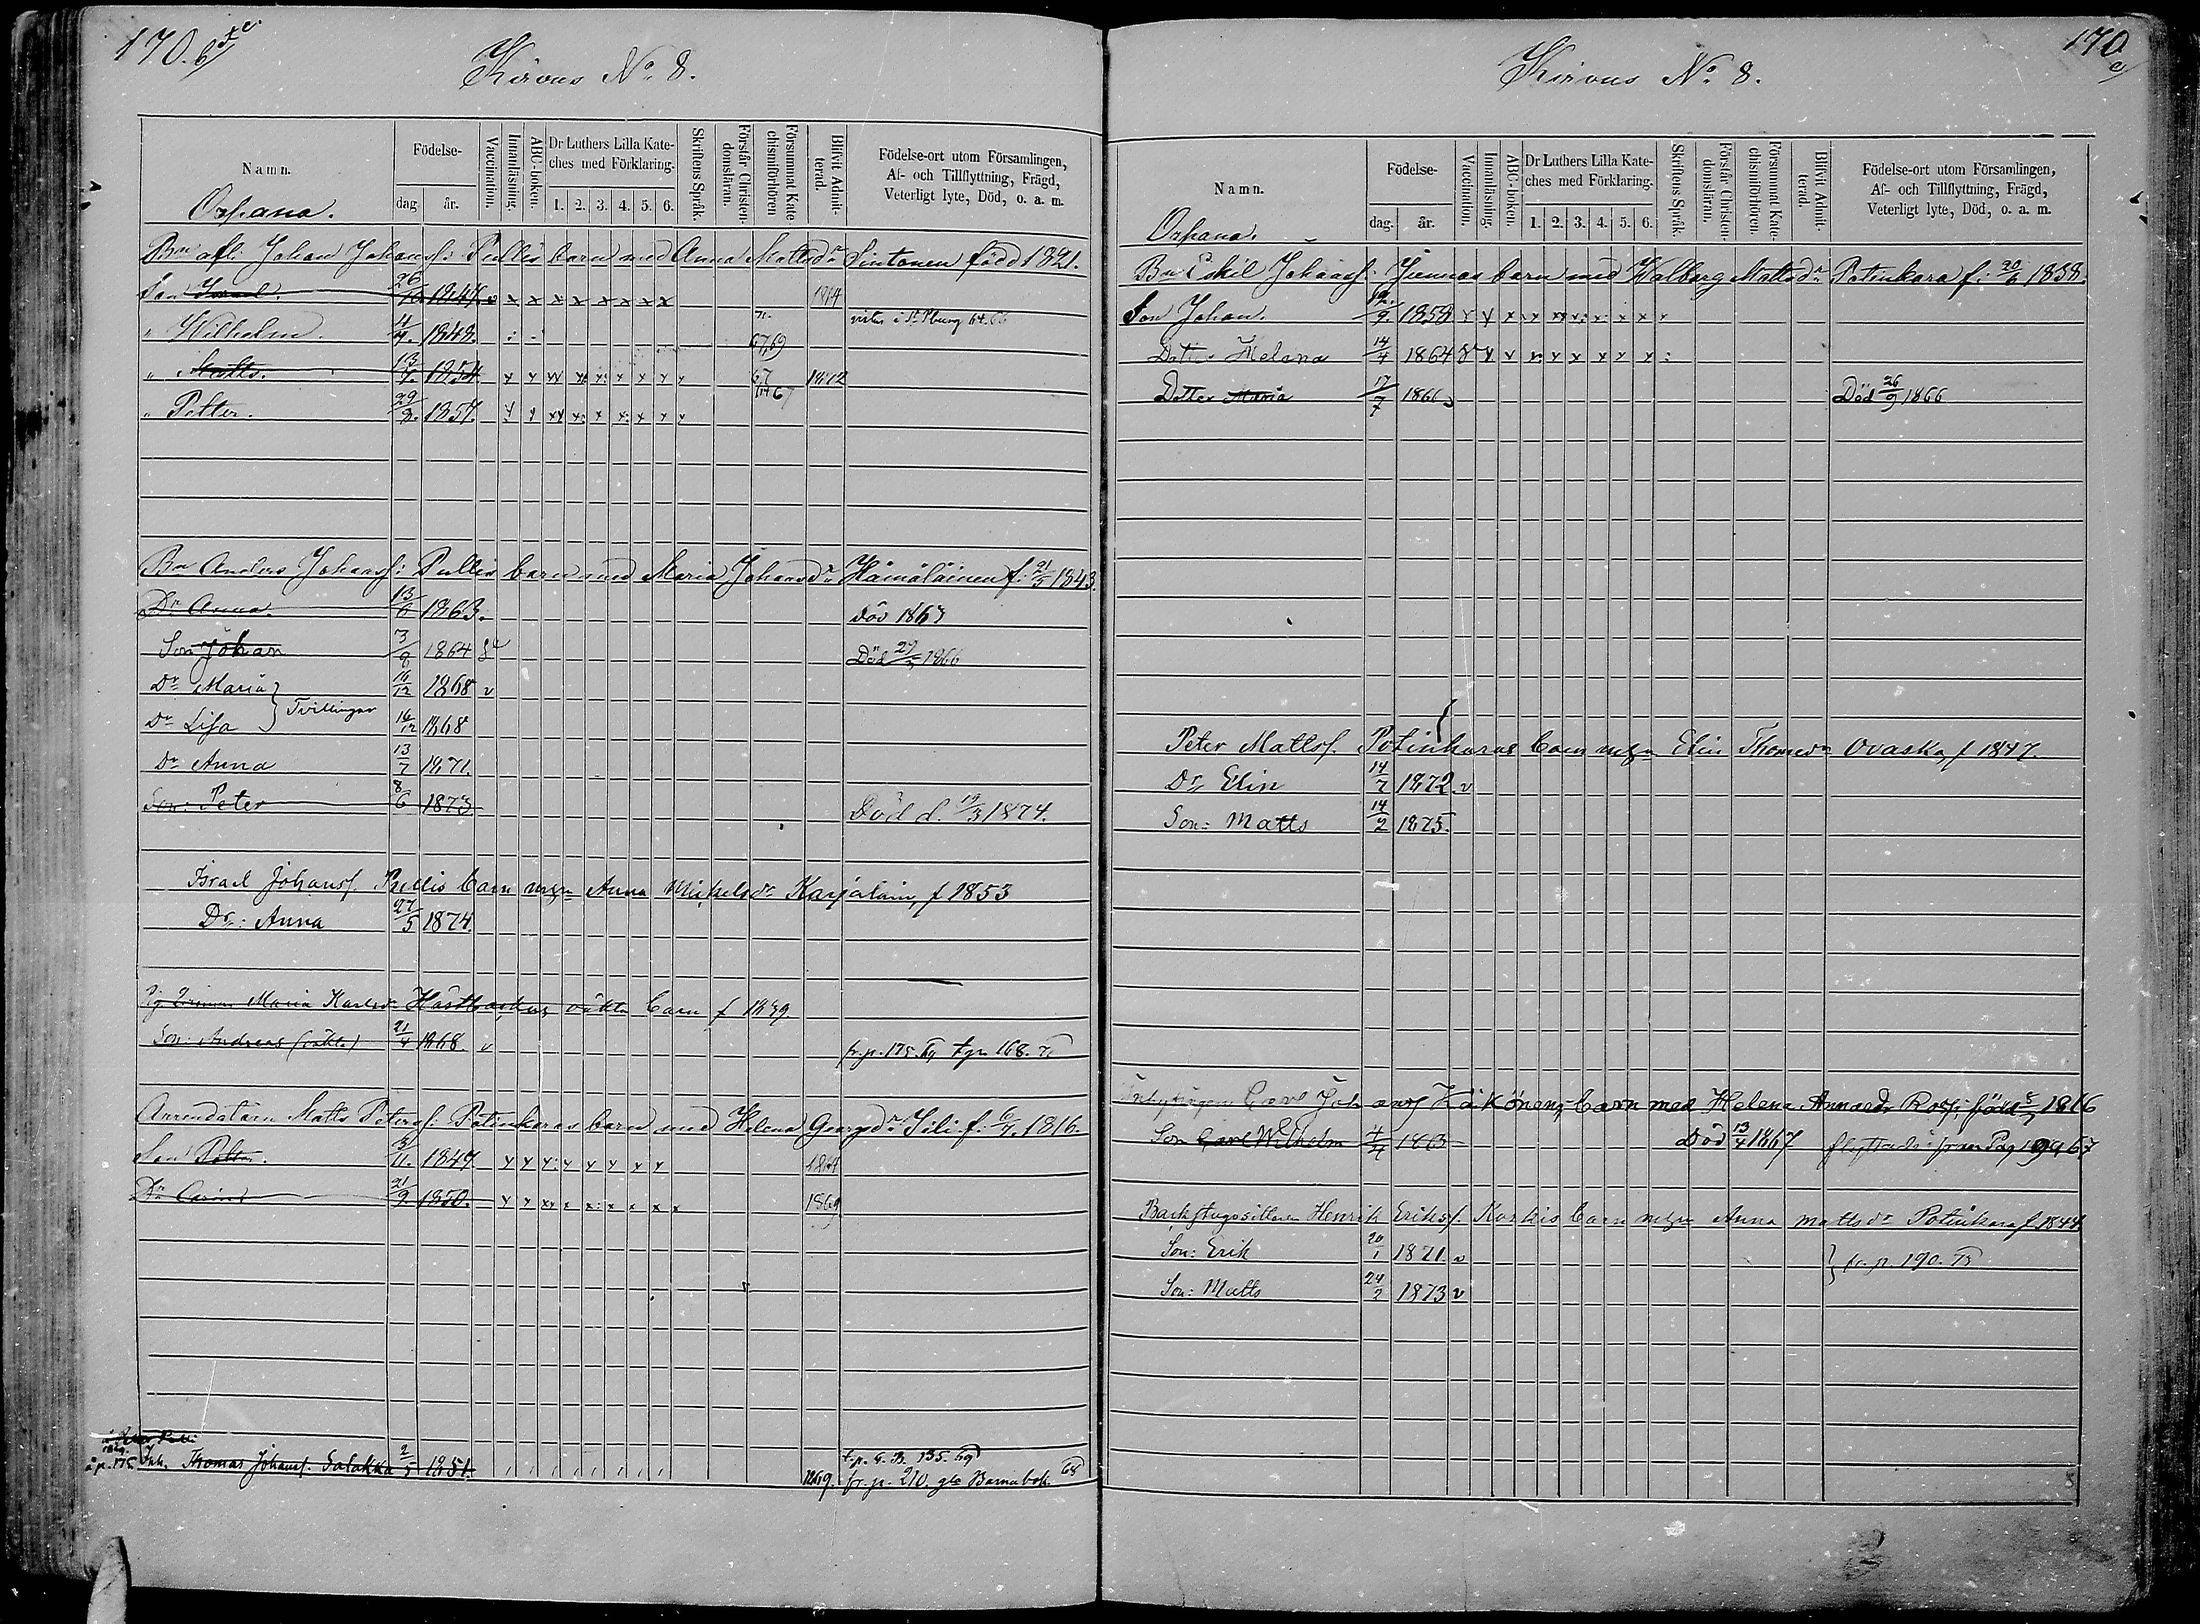 170.b
Kirvus No 8.
Namn.
Födelse-
dag
år.
Vaccination.
Innanläsning.
ABC-boken.
Dr Luthers Lilla Kate-
ches med Förklaring.
1. 2. 3. 4. 5. 6.
Skriftens Språk.
Förstår Christen-
domsläran.
Försummat Kate
chismiförhören
Blifvit Admit-
terad.
Födelse-ort utom Församlingen,
Af- och Tillflyttning, Frägd,
Veterligt lyte, Död, o. a. m.
Orpana.
Bn afl: Johan Johansf: Pullis barn med Anna Mattsdr Sintonen född 1821.
Son Israel. 26/10 1847. x x x x x x x x 1864
" Wilhelm. 11/4. 1849. 67,69 vistas i St Pburg 64.66
" Matts. 13/7. 1854 67 1872
" Petter. 29/3. 1857. 67
Bn Anders Johansf: Pullis barn med Maria Johansdr Hämäläinen f: 21/5 1843.
Dr Anna. 13/6 1863. död 1863
Son Johan 3/8 1864 Död 27/ 1866
Dr Maria 16/12 1868 v
Tvillingar
Dr Lisa 16/12 1868
Dr Anna 13/7 1871.
Son: Peter 8/6 1873 Död d. 19/3 1874.
Israel Johansf. Pullis barn m/hn Anna Michelsdr Karjalain, f 1853
Dr: Anna 27/5 1874.
Maria Karlsdr oäkta barn f 1839.
Son: Andreas (oäkta) 21/4 1868. v fr. p. 175. t. p. 168.
Arrendatorn Matts Petersf: Potinkaras barn med Helena Georgsdr Sili f: 6/7. 1816.
Son Petter. 5/11. 1847 1864
Dr Carin 21/9. 1850. 1869
å p. 175. Inh. Thomas Johansf. Salakka 2/5 1851. 1869.
t. p. G. B. 135. 69
fr. p. 210. gla Barnabok. 68
170
c
Kirvus No 8.
Namn.
Födelse-
dag.
år.
Vaccination.
Innanläsning.
ABC-boken.
Dr Luthers Lilla Kate-
ches med Förklaring.
1. 2. 3. 4. 5. 6.
Skriftens Språk.
Förstår Christen-
domsläran.
Försummat Kate-
chismiförhören.
Blifvit Admit-
terad.
Födelse-ort utom Församlingen,
Af- och Tillflyttning, Frägd,
Veterligt lyte, Död, o. a. m.
Orpana.
Bn Eskil Johansf: Junnas barn med Walborg Mattsdr Potinkara f: 20/6 1838.
Son Johan. 12/9. 1858
Dotter Helena 14/4 1864
Dotter Maria 17/7 1866 Död 26/9 1866
Peter Mattsf. Potinkaras barn m/hn Elin Thomasdr Ovaska, f 1847.
Dr Elin 14/7 1872. v
Son: Matts 14/2 1875.
Inhysingen Carl Johansf Käkönens barn med Helena Annasdr Rossi född 5/7 1816
Son Carl Wilhelm 4/4 1863 Död 13/4 1867 flyttade från Pag 199 67
Backstugosittaren Henrik Eriksf. Korkis barn m/hn Anna Mattsdr Potinkara f 1844
Son: Erik 20/1 1871. v
fr. p. 190. 73
Son: Matts 24/2 1873 v